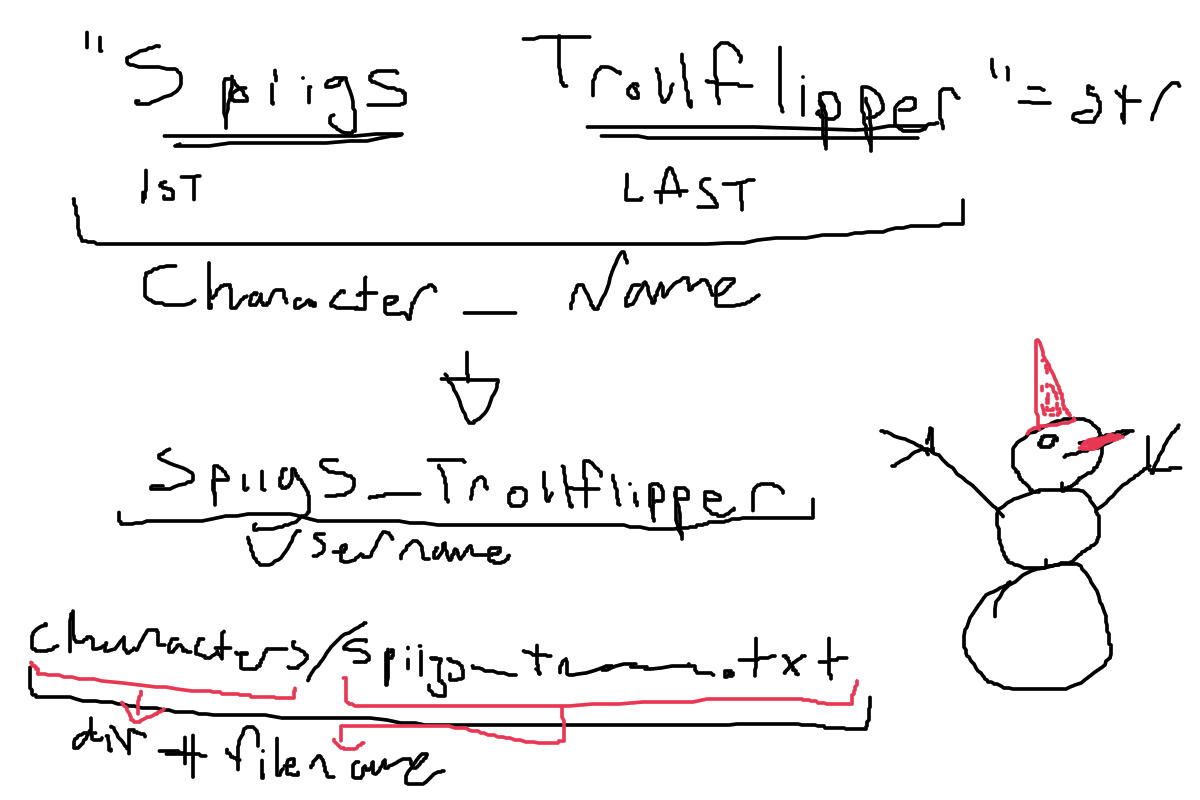 "Spiigs Trollflipper" = str
1ST LAST
Character_Name
Spiigs_Trollflipper
Username
characters/spiigs_tr.txt
dir + filename